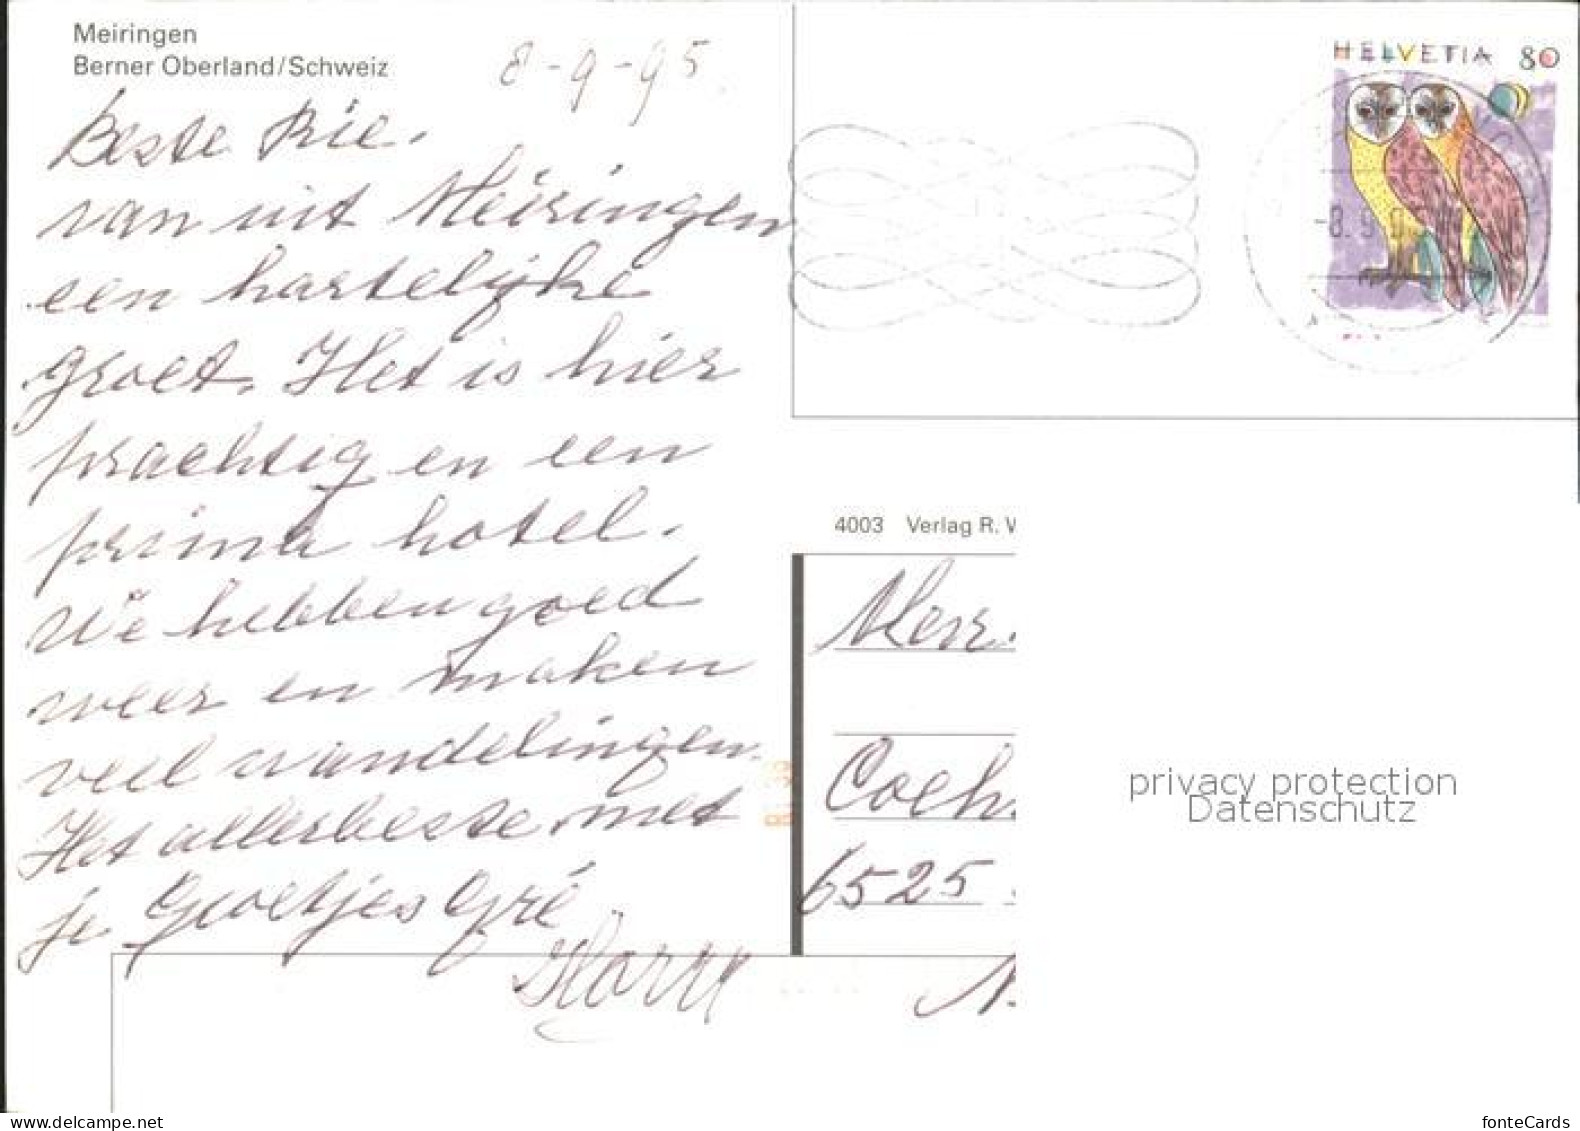 Meiringen
Berner Oberland/Schweiz
8-9-95
HELVETIA 80
-8.9.95
Beste Rie.
van uit Meiringen
een hartelijke
groet. Het is hier
prachtig en een
prima hotel.
We hebben goed
weer en maken
veel wandelingen.
Het allerbeste met
je Groetjes Gré
Harry
4003 Verlag R. W
Mevr.
Coeh.
6525
N.
privacy protection
Datenschutz
www.delcampe.net
fonteCards